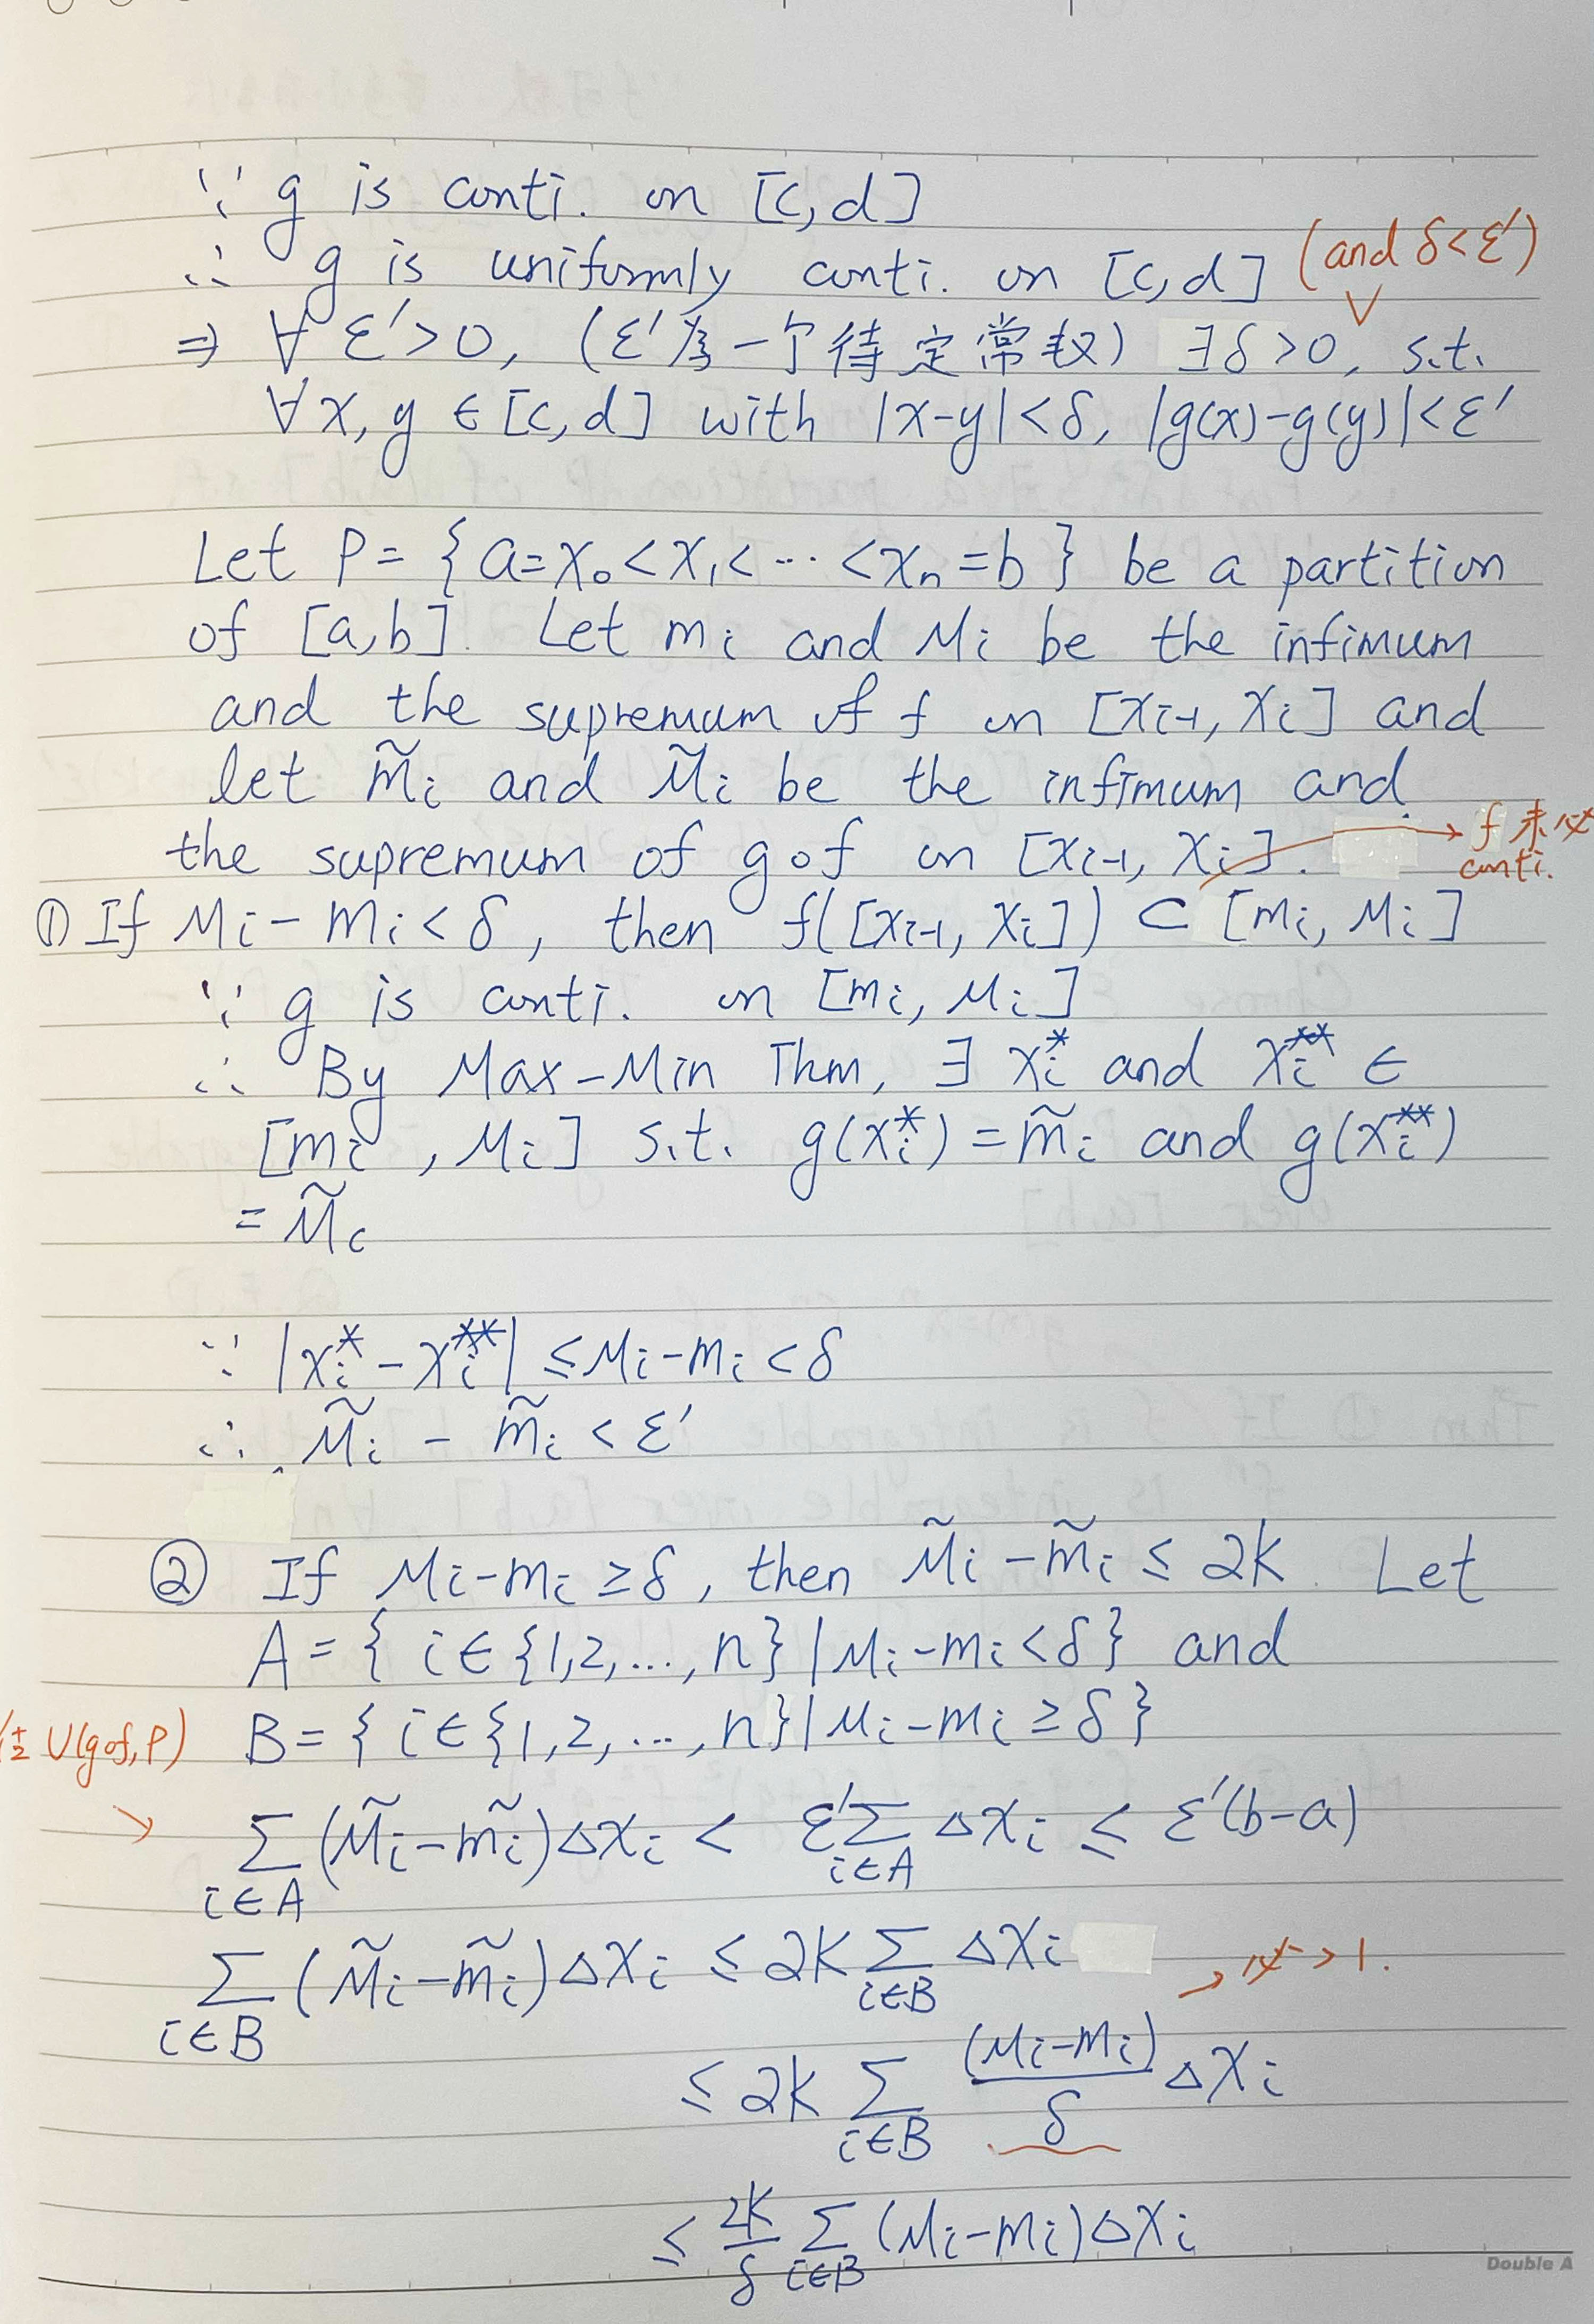 ∵ g is conti. on [c,d]
∴ g is uniformly conti. on [c,d] (and δ<ε')
⇒ ∀ ε'>0, (ε'為一个待定常数) ∃δ>0, s.t.
∀x, y ∈ [c,d] with |x-y|<δ, |g(x)-g(y)|<ε'
Let P= {a=x₀<x₁<⋯<xₙ=b} be a partition
of [a,b]. Let mᵢ and Mᵢ be the infimum
and the supremum of f on [xᵢ₋₁, xᵢ] and
let m̃ᵢ and M̃ᵢ be the infimum and
the supremum of g∘f on [xᵢ₋₁, xᵢ]. → f 未必 conti.
① If Mᵢ-mᵢ<δ, then f([xᵢ₋₁, xᵢ]) ⊂ [mᵢ, Mᵢ]
∵ g is conti. on [mᵢ, Mᵢ]
∴ By Max-Min Thm, ∃ xᵢ* and xᵢ** ∈
[mᵢ, Mᵢ] s.t. g(xᵢ*) = m̃ᵢ and g(xᵢ**)
= M̃ᵢ
∵ |xᵢ*-xᵢ**| ≤ Mᵢ-mᵢ<δ
∴ M̃ᵢ - m̃ᵢ < ε'
② If Mᵢ-mᵢ≥δ, then M̃ᵢ-m̃ᵢ ≤ 2K. Let
A={ i∈{1,2,...,n} | Mᵢ-mᵢ<δ} and
B={ i∈{1,2,...,n} | Mᵢ-mᵢ≥δ}
U(g∘f,P)
→ Σ_{i∈A} (M̃ᵢ-m̃ᵢ)Δxᵢ < ε'Σ_{i∈A} Δxᵢ ≤ ε'(b-a)
Σ_{i∈B} (M̃ᵢ-m̃ᵢ)Δxᵢ ≤ 2K Σ_{i∈B} Δxᵢ
→ 必>1.
≤ 2K Σ_{i∈B} (Mᵢ-mᵢ)/δ Δxᵢ
≤ 2K/δ Σ_{i∈B} (Mᵢ-mᵢ)Δxᵢ
Double A